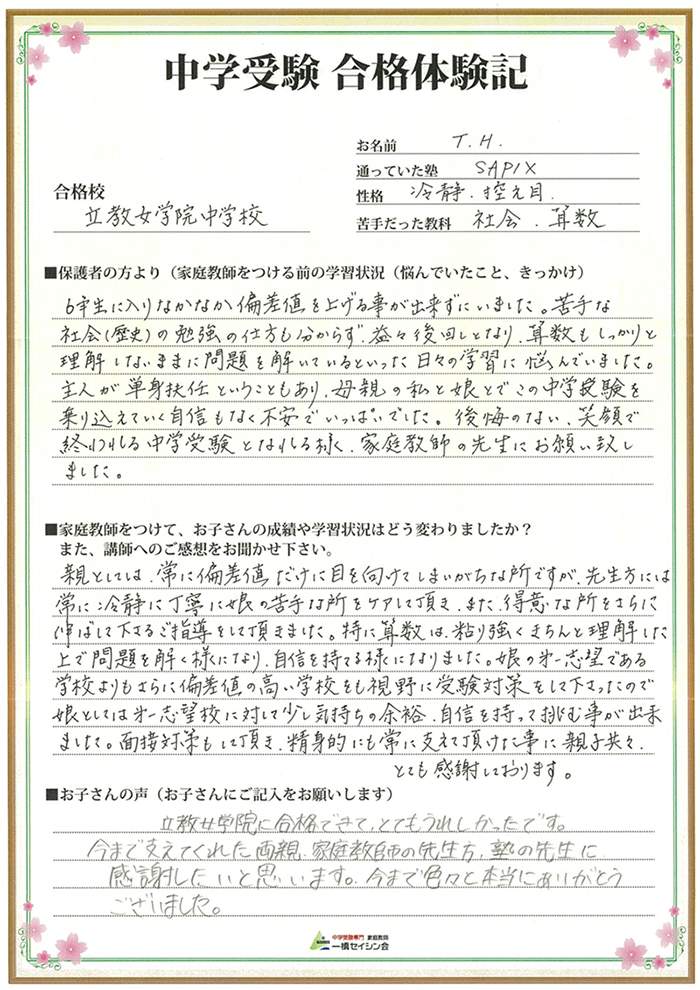 中学受験 合格体験記
お名前 T.H.
通っていた塾 SAPIX
合格校
立教女学院中学校
性格 冷静.控え目.
苦手だった教科 社会.算数
■保護者の方より（家庭教師をつける前の学習状況（悩んでいたこと、きっかけ）
6年生に入りなかなか偏差値を上げる事が出来ずにいました。苦手な
社会(歴史)の勉強の仕方も分からず.益々後回しとなり.算数もしっかりと
理解しないままに問題を解いているといった日々の学習に悩んでいました。
主人が単身赴任ということもあり.母親の私と娘とでこの中学受験を
乗り込えていく自信もなく不安でいっぱいでした。後悔のない.笑顔で
終われる中学受験となれる様.家庭教師の先生にお願い致し
ました。
■家庭教師をつけて、お子さんの成績や学習状況はどう変わりましたか？
また、講師へのご感想をお聞かせ下さい。
親としては.常に偏差値だけに目を向けてしまいがちな所ですが.先生方には
常に冷静に丁寧に娘の苦手な所をケアして頂き.また.得意な所をさらに
伸ばして下さるご指導をして頂きました。特に算数は.粘り強くきちんと理解した
上で問題を解く様になり.自信を持てる様になりました。娘の才一志望である
学校よりもさらに偏差値の高い学校をも視野に受験対策をして下さったので
娘としては才一志望校に対して少し気持ちの余裕.自信を持って挑む事が出来
ました。面接対策もして頂き.精身的にも常に支えて頂けた事に親子共々.
とても感謝しております。
■お子さんの声（お子さんにご記入をお願いします）
立教女学院に合格できて,とてもうれしかったです。
今まで支えてくれた両親.家庭教師の先生方,塾の先生に
感謝したいと思います。今まで色々と本当にありがとう
ございました。
中学受験専門 家庭教師
一橋セイシン会